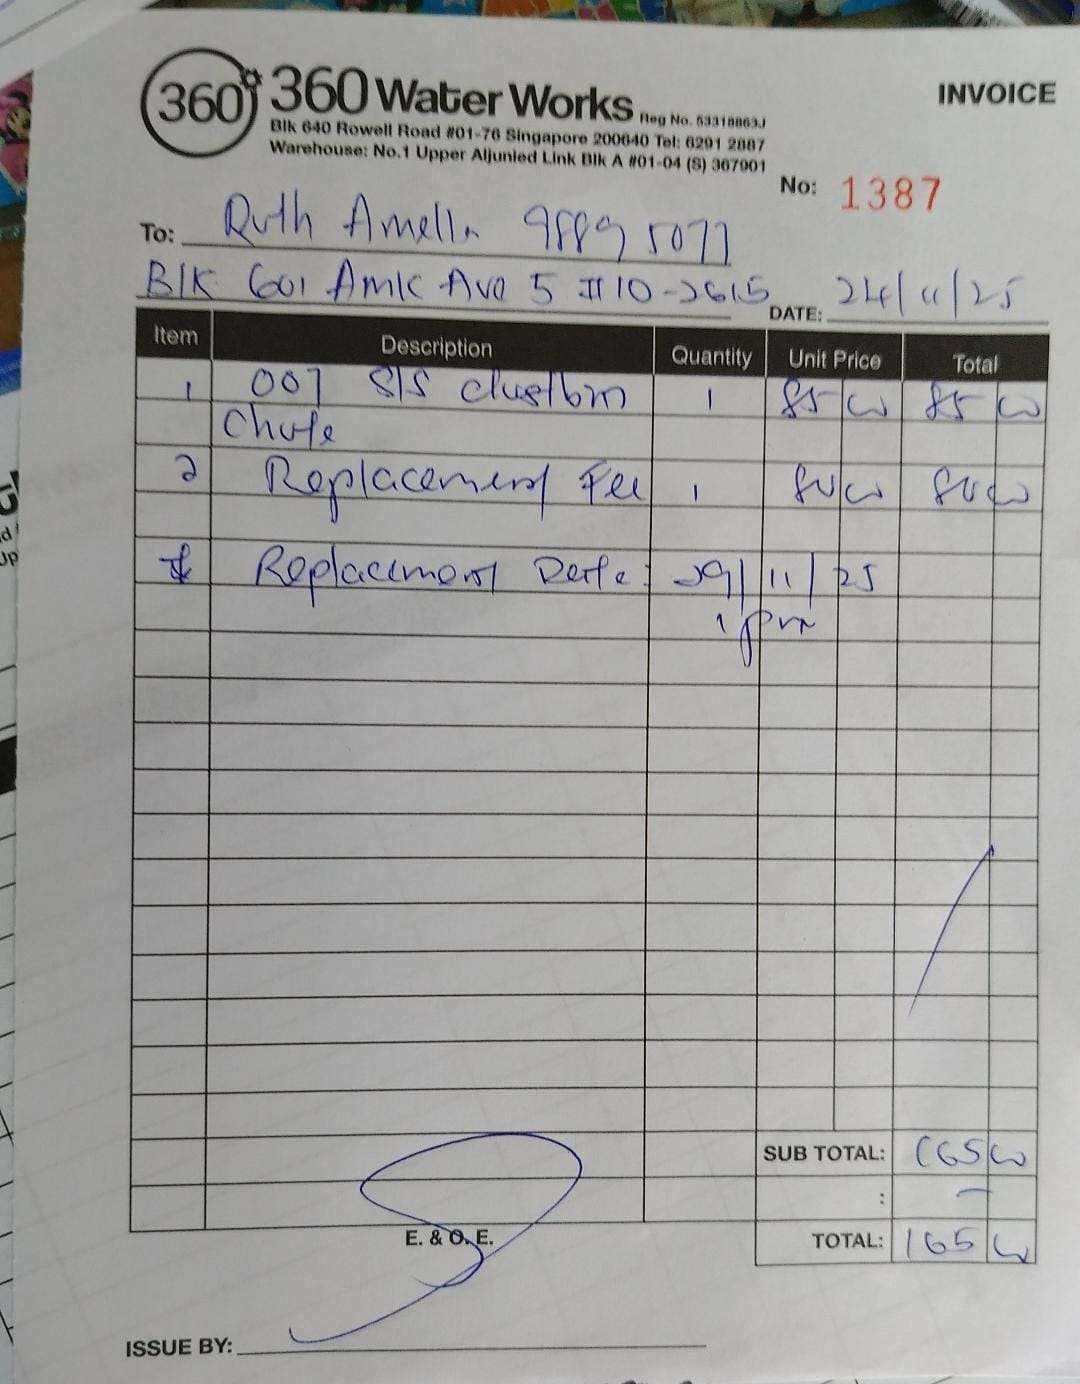 360 360 Water Works Reg No. 53318863J
INVOICE
Blk 640 Rowell Road #01-76 Singapore 200640 Tel: 6291 2887
Warehouse: No.1 Upper Aljunied Link Blk A #01-04 (S) 367901
No: 1387
To: Ruth Amella 9889 5077
Blk 601 Amk Ave 5 #10-2615 DATE: 24/11/25
Item Description Quantity Unit Price Total
1 007 S/S 1 85 00 85 00
Chute
2 Replacement Fee 1 80 00 80 00
* Replacement Date: 29/11/25
1pm
SUB TOTAL: 165 00
: -
TOTAL: 165 00
E. & O. E.
ISSUE BY: